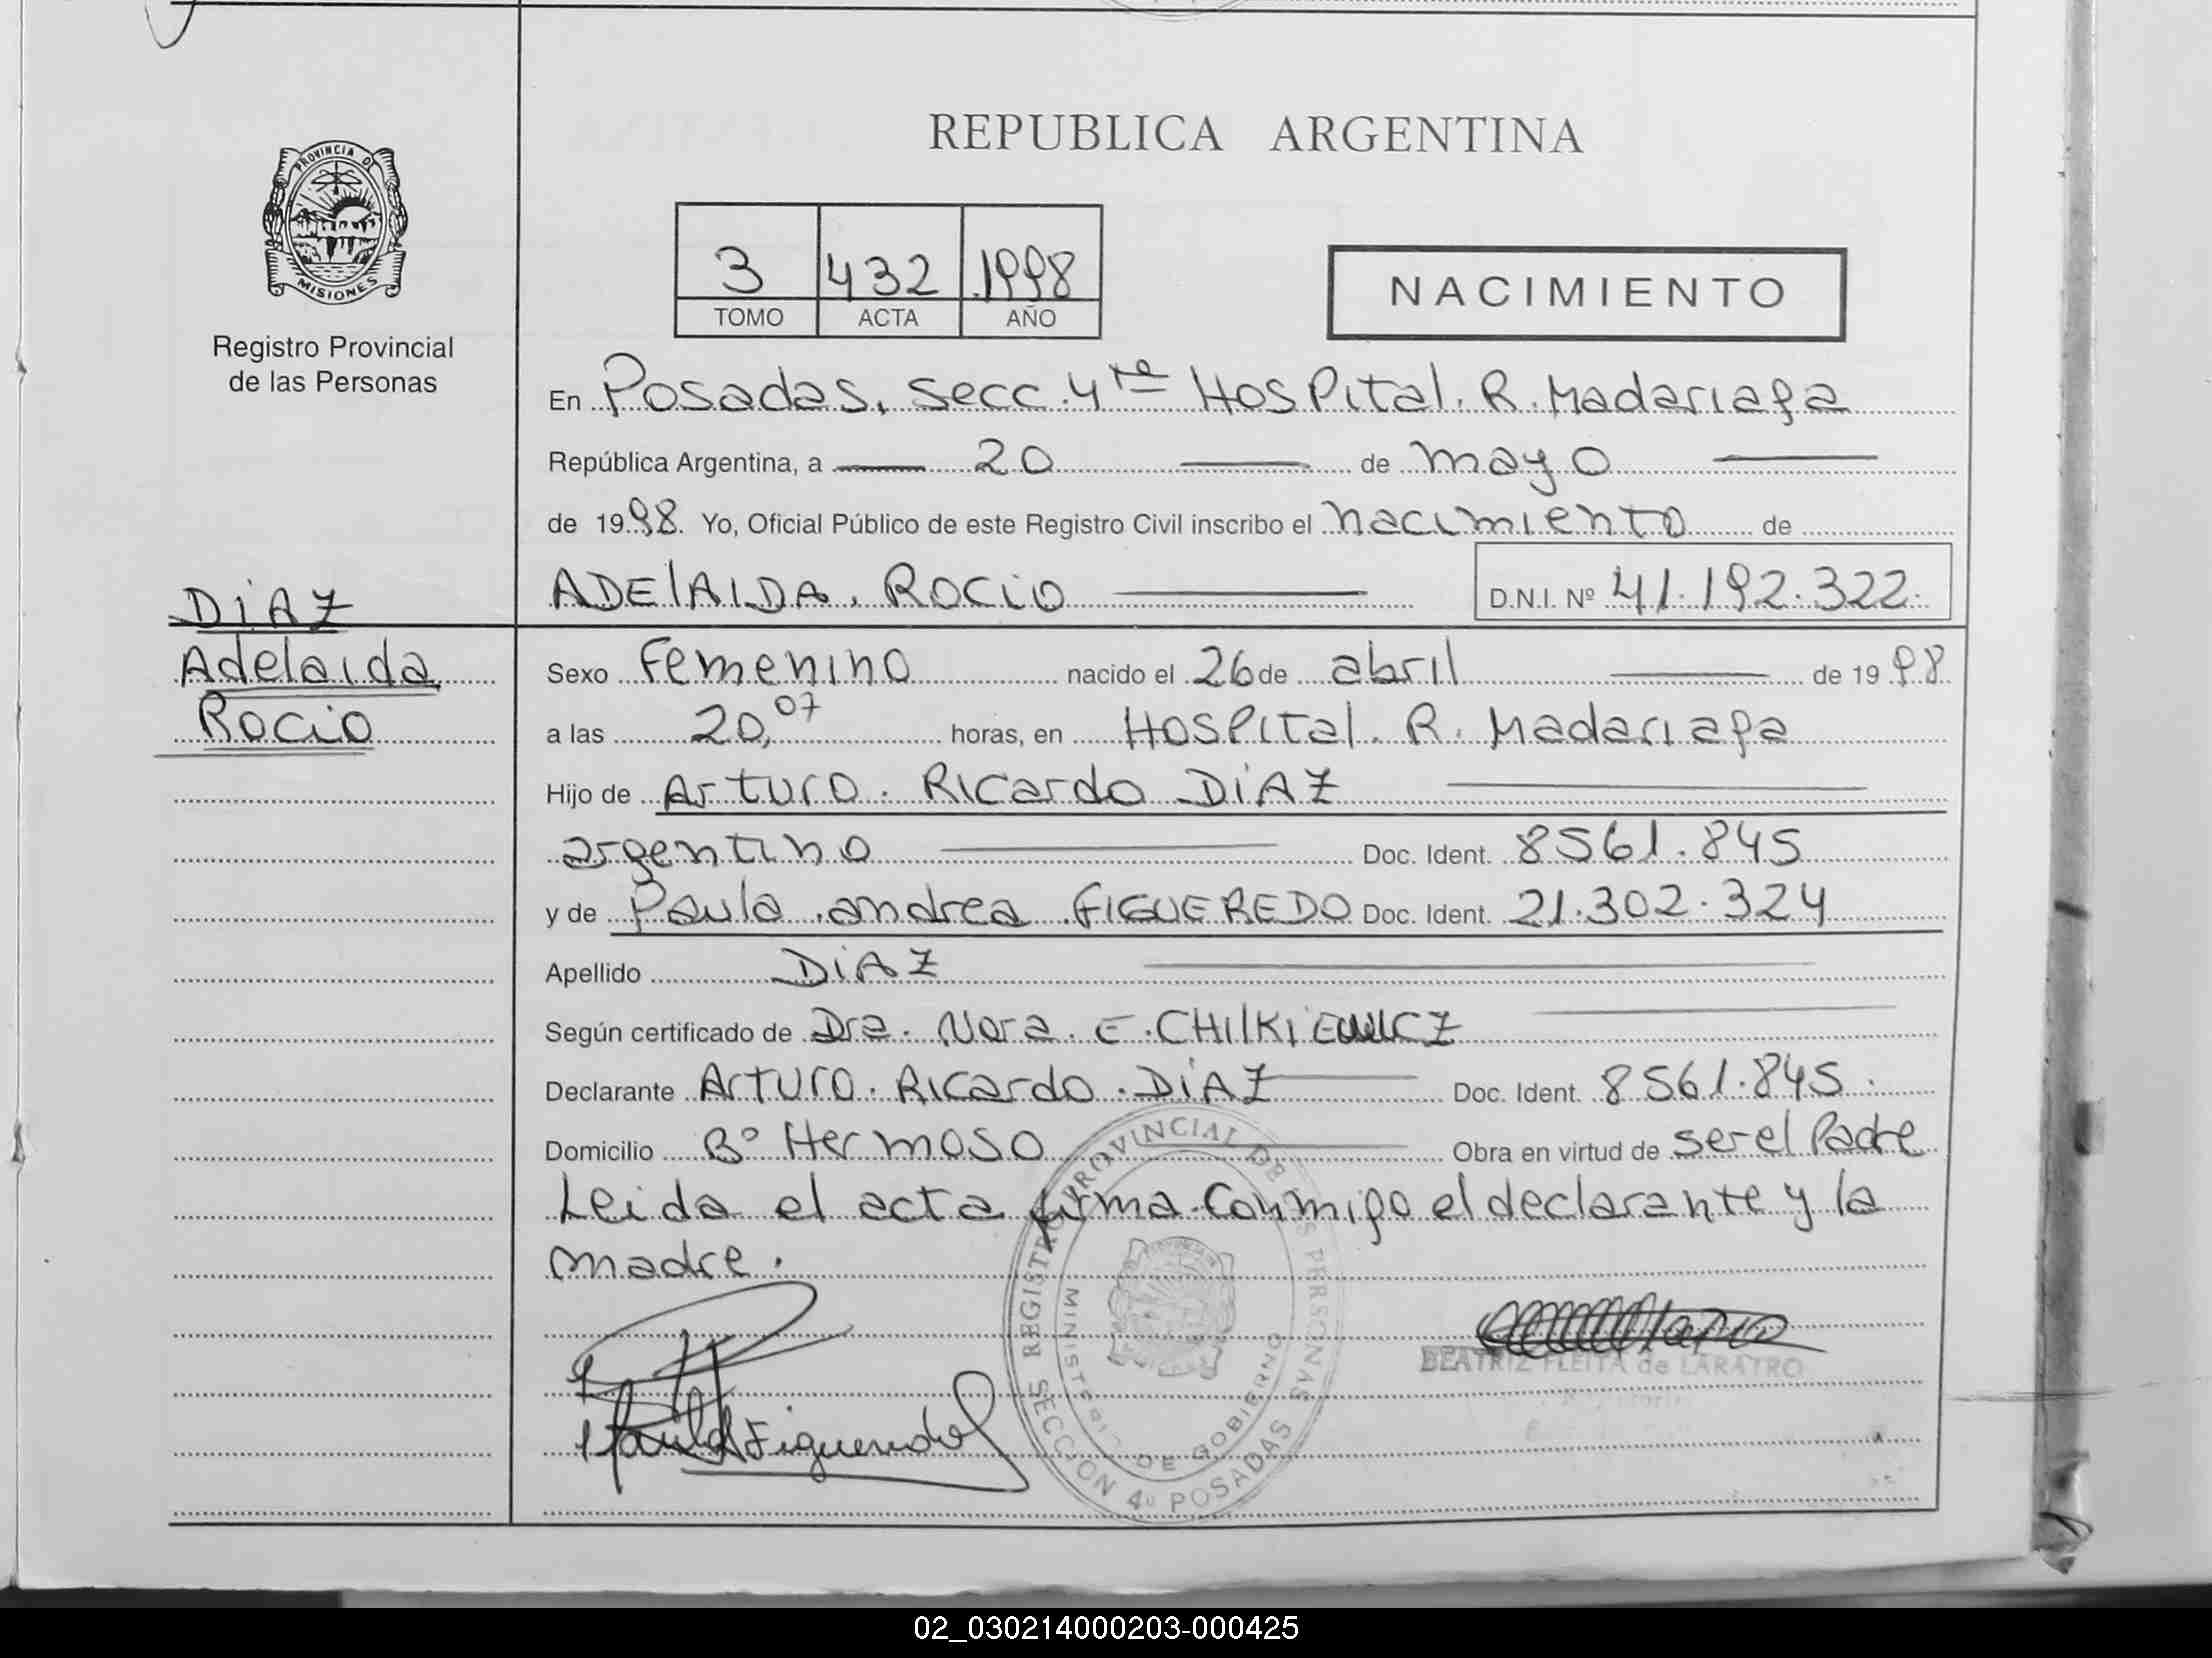 REPUBLICA ARGENTINA
PROVINCIA DE
MISIONES
Registro Provincial
de las Personas
3 432 1998
TOMO ACTA AÑO
NACIMIENTO
En Posadas, secc. 4ta Hospital. R. Madariaga
República Argentina, a 20 de mayo
de 1998. Yo, Oficial Público de este Registro Civil inscribo el nacimiento de
ADELAIDA. ROCIO D.N.I. Nº 41.192.322.
DIAZ
Adelaida
Rocio
Sexo Femenino nacido el 26 de abril de 1998
a las 20,07 horas, en Hospital. R. Madariaga
Hijo de Arturo. Ricardo DIAZ
argentino Doc. Ident. 8561.845
y de Paula andrea FIGUEREDO Doc. Ident. 21.302.324
Apellido DIAZ
Según certificado de Dra. Nora. E. CHILKIEWICZ
Declarante Arturo. Ricardo. DIAZ Doc. Ident. 8561.845.
Domicilio Bº Hermoso Obra en virtud de ser el Padre
Leida el acta firma conmigo el declarante y la
madre.
REGISTRO PROVINCIAL DE LAS PERSONAS
MINISTERIO DE GOBIERNO
SECCION 4º POSADAS
BEATRIZ FLEITA de LARATRO
Paula Figueredo
02_030214000203-000425